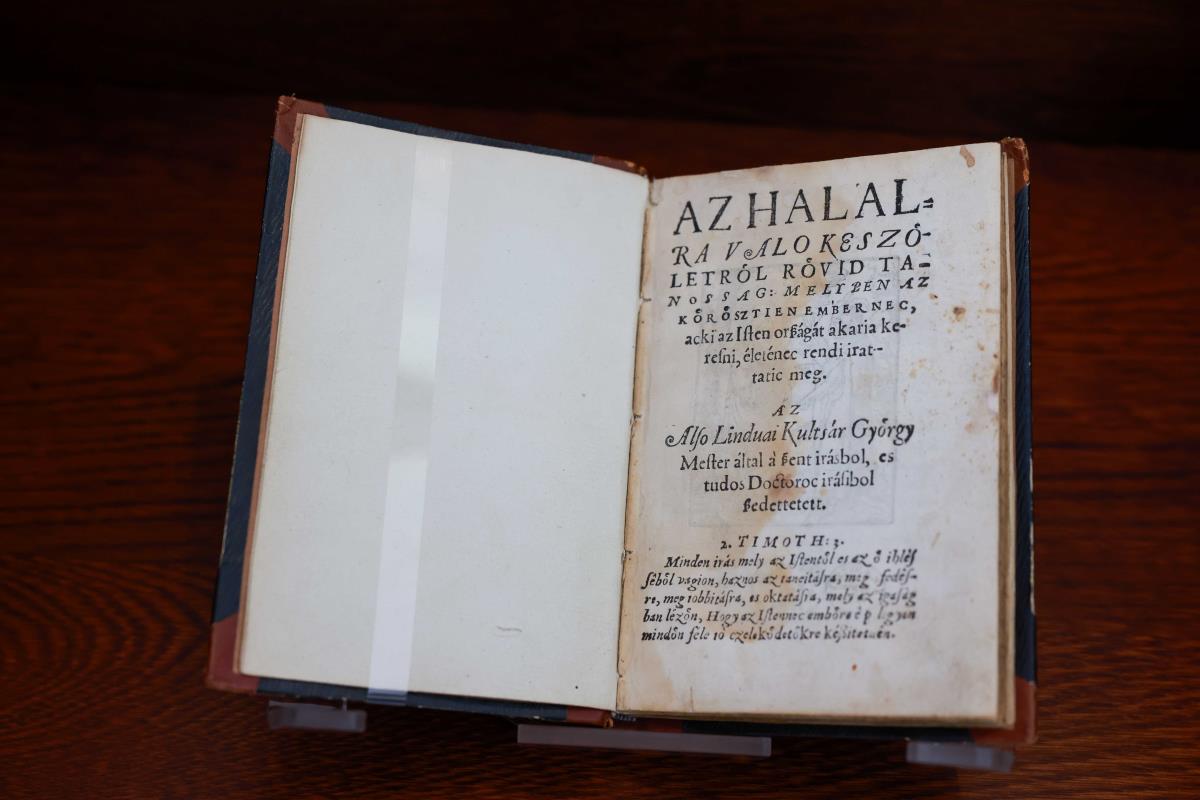 AZ HALAL=
RA VALO KESZŐ-
LETRŐL RŐVID TA-
NOSSAG: MELYBEN AZ
KŐRŐSZTIEN EMBERNEC,
acki az Iſten orßágát akaria ke-
reſni, életénec rendi irat-
tatic meg.
AZ
Alſo Linduai Kultsár Gyŏrgy
Meſter által à ßent irásbol, es
tudos Doctoroc iráſibol
ßedettetett.
2. TIMOTH: 3.
Minden irás mely az Iſtentŏl es az ŏ ihléſ
ſéből vagion, haznos az taneitáſra, meg fedéſ-
re, meg iobbitáſra, es oktatáſra, mely az igaſág
ban lézŏn, Hogy az Iſtennec embŏre ép légyen
mindŏn féle ió czelekŏdetŏkre kéßitetuén.